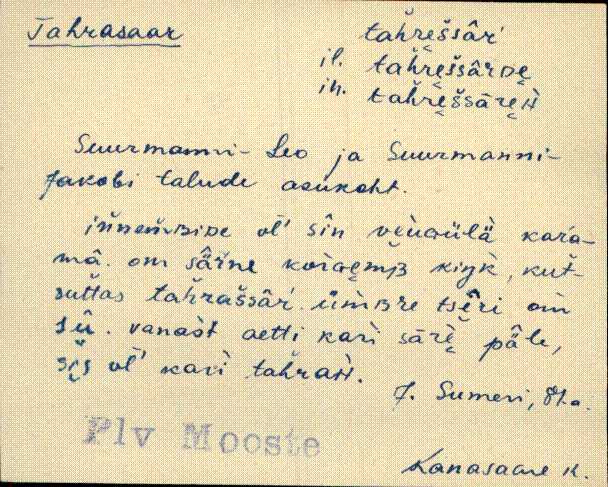 Tahrasaar
tah̆re̮ššâŕ
il. tah̆re̮ššârDe̮
in. tah̆re̮ššāre̮H
Suurmanni-Leo ja Suurmanni-
Jakobi talude asukoht.
iňnem̆BiDe ol' sîn
kara-
mâ. om sârne
kiŋk, kut̆-
suttas tah̆raššâŕ. üm̆Bre tsê̮ri om
sû. vanast aetti kari sāre̮ pâle,
si̮s ol' kari tah̆raH.
J. Sumeri, 81.a.
Plv Mooste
Kanasaare k.